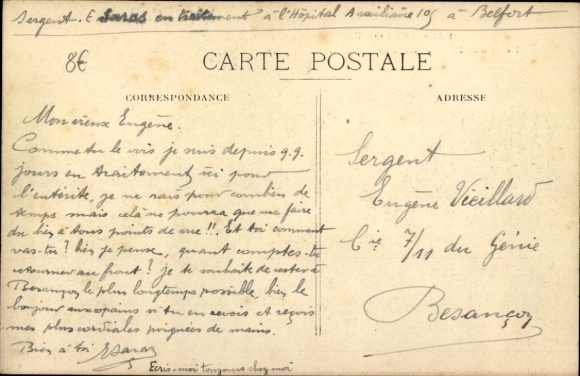 Sergent. E Saras en traitement à l'Hôpital Auxiliaire 105 à Belfort
8€
CARTE POSTALE
CORRESPONDANCE
ADRESSE
Mon vieux Eugène.
Comme tu le vois je suis depuis q.q.
jours en traitement ici pour
l'entérite, je ne sais pour combien de
temps, mais celà ne pourra que me faire
du bien à tous points de vue !!. Et toi comment
vas-tu ? bien je pense, quant comptes-tu
retourner au front ? je te souhaite de rester à
Besançon le plus longtemps possible, bien le
bonjour aux copains si tu en vois et reçois
mes plus cordiales poignées de mains.
Bien à toi ESaras
Ecris-moi toujours chez moi
Sergent
Eugène Vieillard
Cie 7/11 du Génie
Besançon